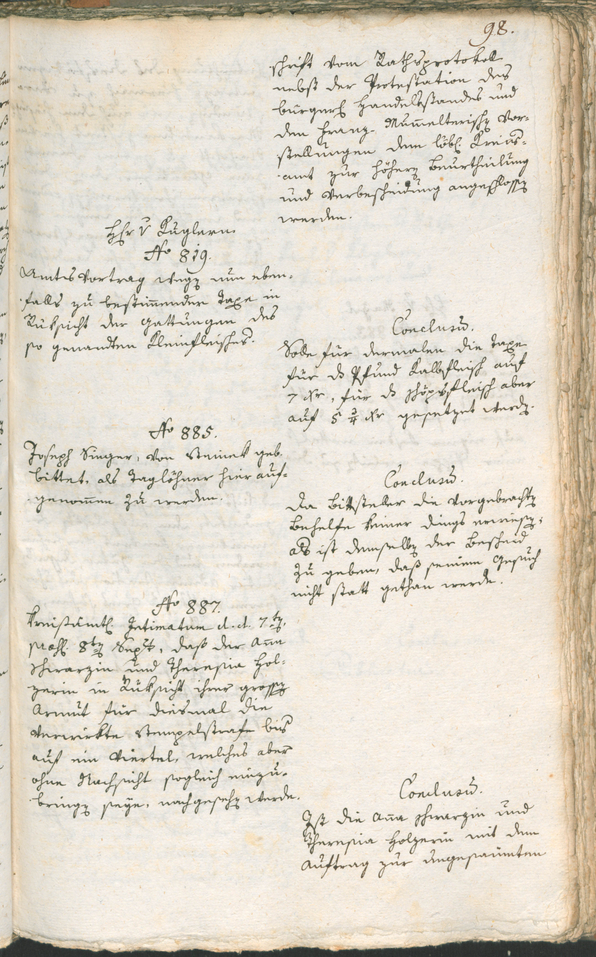 98.
schrift vom Rathsprotokoll
nebst der Protestation des
burgerl. Handelsstandes und
den Franz Mumelterischen Vor-
stellungen dem löbl. Kreis-
amt zur höhern Beurtheilung
und Verbescheidung angeschlossen
werden.
Hhr v Kuglern
No 819.
Amtsvortrag wegen nun eben-
falls zu bestimmender Taxe in
Rüksicht der Gattungen des
so genandten Kleinfleisches.
Conclusum.
Solle für dermalen die Taxe
für ds Pfund Kalbfleisch auf
7 kr, für ds schöpsfleisch aber
auf 5 3/4 kr gesetzet werden.
No 885.
Joseph Singer, von Steinek geb.
bittet, als Taglöhner hier auf-
genommen zu werden.
Conclusum.
Da Bittsteller die vorgebrachten
Behelfe keiner dings erwiesen,
als ist demselben der Bescheid
zu geben, daß seinem Gesuch
nicht statt gethan werde.
No 887.
Kreisamtl. Intimatum d. d. 7ten
praes. 8ten Sept, daß der Anna
Schwarzin und Theresia Hol-
zerin in Rüksicht ihrer grossen
Armut für diesmal die
verwirkte Stempelstrafe bis
auf ein Viertel, welches aber
ohne Nachsicht sogleich einzu-
bringen seye, nachgesehen werde.
Conclusum.
Ist die Anna Schwarzin und
Theresia Holzerin mit dem
Auftrag zur ungesäumten